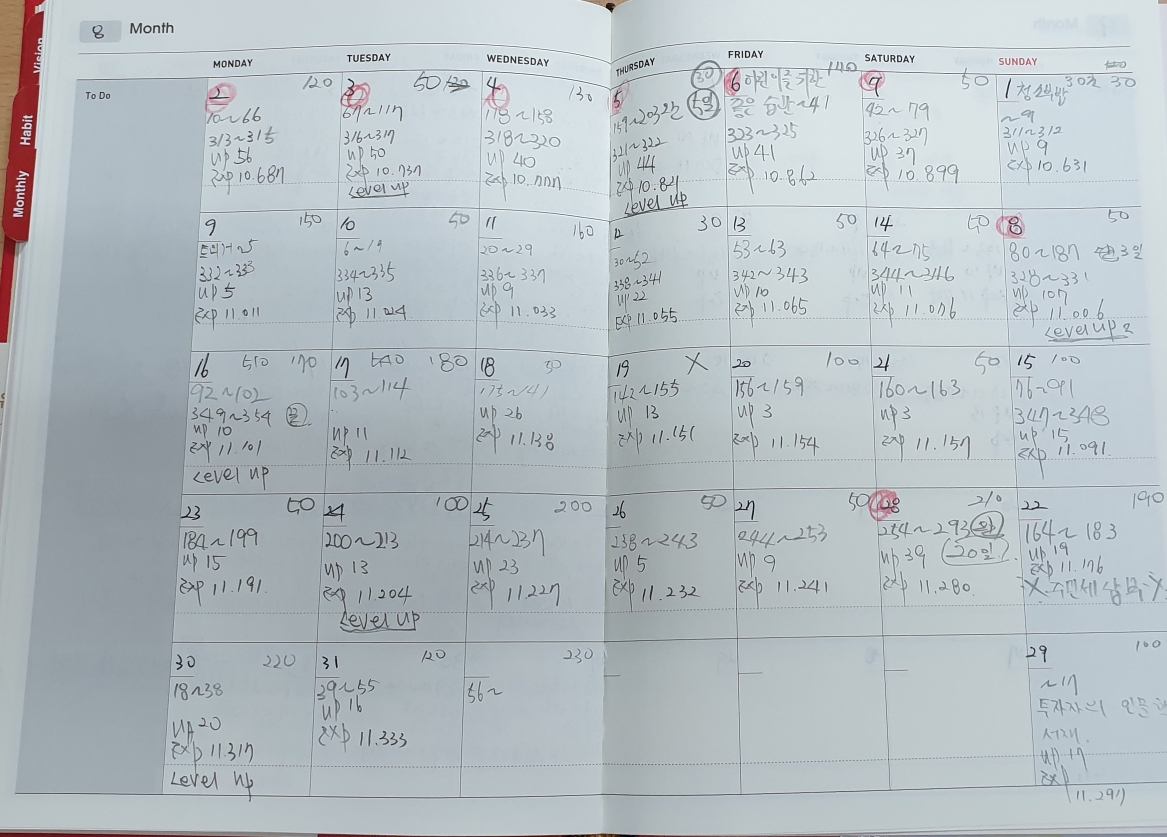 8 Month
Vision
Habit
Monthly
To Do
MONDAY
TUESDAY
WEDNESDAY
THURSDAY
FRIDAY
SATURDAY
SUNDAY
2 120
10~66
313~315
up 56
exp 10.687
3 50
67~117
316~317
up 50
exp 10.737
Level up
4 130
118~158
318~320
up 40
exp 10.777
5 30
159~203 완 5일
321~322
up 44
exp 10.821
Level up
6 어린이를 위한 140
좋은 습관 ~41
323~325
up 41
exp 10.862
7 50
42~79
326~327
up 37
exp 10.899
1 청소부밥 30
~9
311~312
up 9
exp 10.631
9 150
~5
332~333
up 5
exp 11.011
10 50
6~19
334~335
up 13
exp 11.024
11 160
20~29
336~337
up 9
exp 11.033
12 30
30~52
338~341
up 22
exp 11.055
13 50
53~63
342~343
up 10
exp 11.065
14 50
64~75
344~346
up 11
exp 11.076
8 50
80~187 3일
328~331
up 107
exp 11.006
Level up 2
16 170
92~102
349~354 끝
up 10
exp 11.101
Level up
17 180
103~114
up 11
exp 11.112
18 30
~141
up 26
exp 11.138
19 X
142~155
up 13
exp 11.151
20 100
156~159
up 3
exp 11.154
21 50
160~163
up 3
exp 11.157
15 100
76~91
347~348
up 15
exp 11.091
23 50
184~199
up 15
exp 11.191
24 100
200~213
up 13
exp 11.204
Level up
25 200
214~237
up 23
exp 11.227
26 50
238~243
up 5
exp 11.232
27 50
244~253
up 9
exp 11.241
28 210
254~293 완
up 39 20일
exp 11.280
22 190
164~183
up 19
exp 11.176
X 주민세 납부 X
30 220
18~38
up 20
exp 11.317
Level up
31 120
39~55
up 16
exp 11.333
230
56~
29 100
~17
투자자의 인문학
서재
up 17
exp
11.297